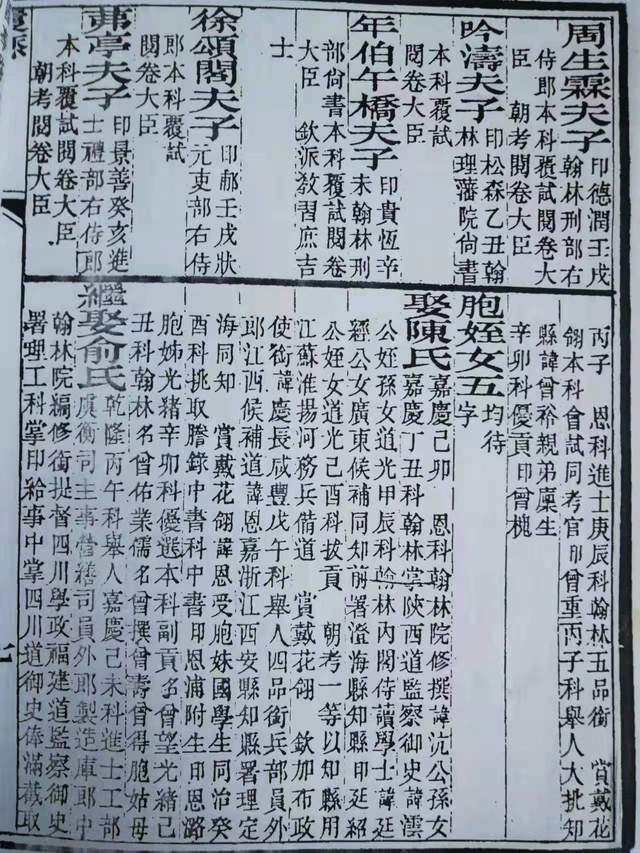 周生霖夫子 印德潤壬戌
翰林刑部右
侍郎本科覆試閱卷大
臣 朝考閱卷大臣
吟濤夫子 印松森乙丑翰
林理藩院尚書
本科覆試
閱卷大臣
年伯午橋夫子 印貴恆辛
未翰林刑
部尚書本科覆試閱卷
大臣 欽派敎習庶吉
士
徐頌閣夫子 印郙壬戌狀
元吏部右侍
郎本科覆試
閱卷大臣
茀亭夫子 印景善癸亥進
士禮部右侍郎
本科覆試閱卷大臣
朝考閱卷大臣
丙子 恩科進士庚辰科翰林五品銜 賞戴花
翎本科會試同考官印曾重丙子科舉人大挑知
縣諱曾裕親弟廩生
辛卯科優貢印曾槐
胞姪女五 均待
字
娶陳氏 嘉慶己卯 恩科翰林院修撰諱沆公孫女
嘉慶丁丑科翰林掌陝西道監察御史諱澐
公姪孫女道光甲辰科翰林內閣侍讀學士諱廷
經公女廣東候補同知前署澄海縣知縣印廷紹
公姪女道光己酉科拔貢 朝考一等以知縣用
江蘇淮揚河務兵備道 賞戴花翎 欽加布政
使銜諱慶長咸豐戊午科舉人四品銜兵部員外
郎江西候補道諱恩嘉浙江西安縣知縣署理定
海同知 賞戴花翎諱恩受胞妹國學生同治癸
酉科挑取謄錄中書科中書印恩浦附生印恩潞
胞姊光緒辛卯科優選本科副貢名曾望光緒己
丑科翰林名曾佑業儒名曾撰曾壽曾得胞姑母
繼娶俞氏 乾隆丙午科舉人嘉慶己未科進士工部
虞衡司主事營繕司員外郎製造庫郎中
翰林院編修銜提督四川學政福建道監察御史
署理工科掌印給事中掌四川道御史俸滿截取